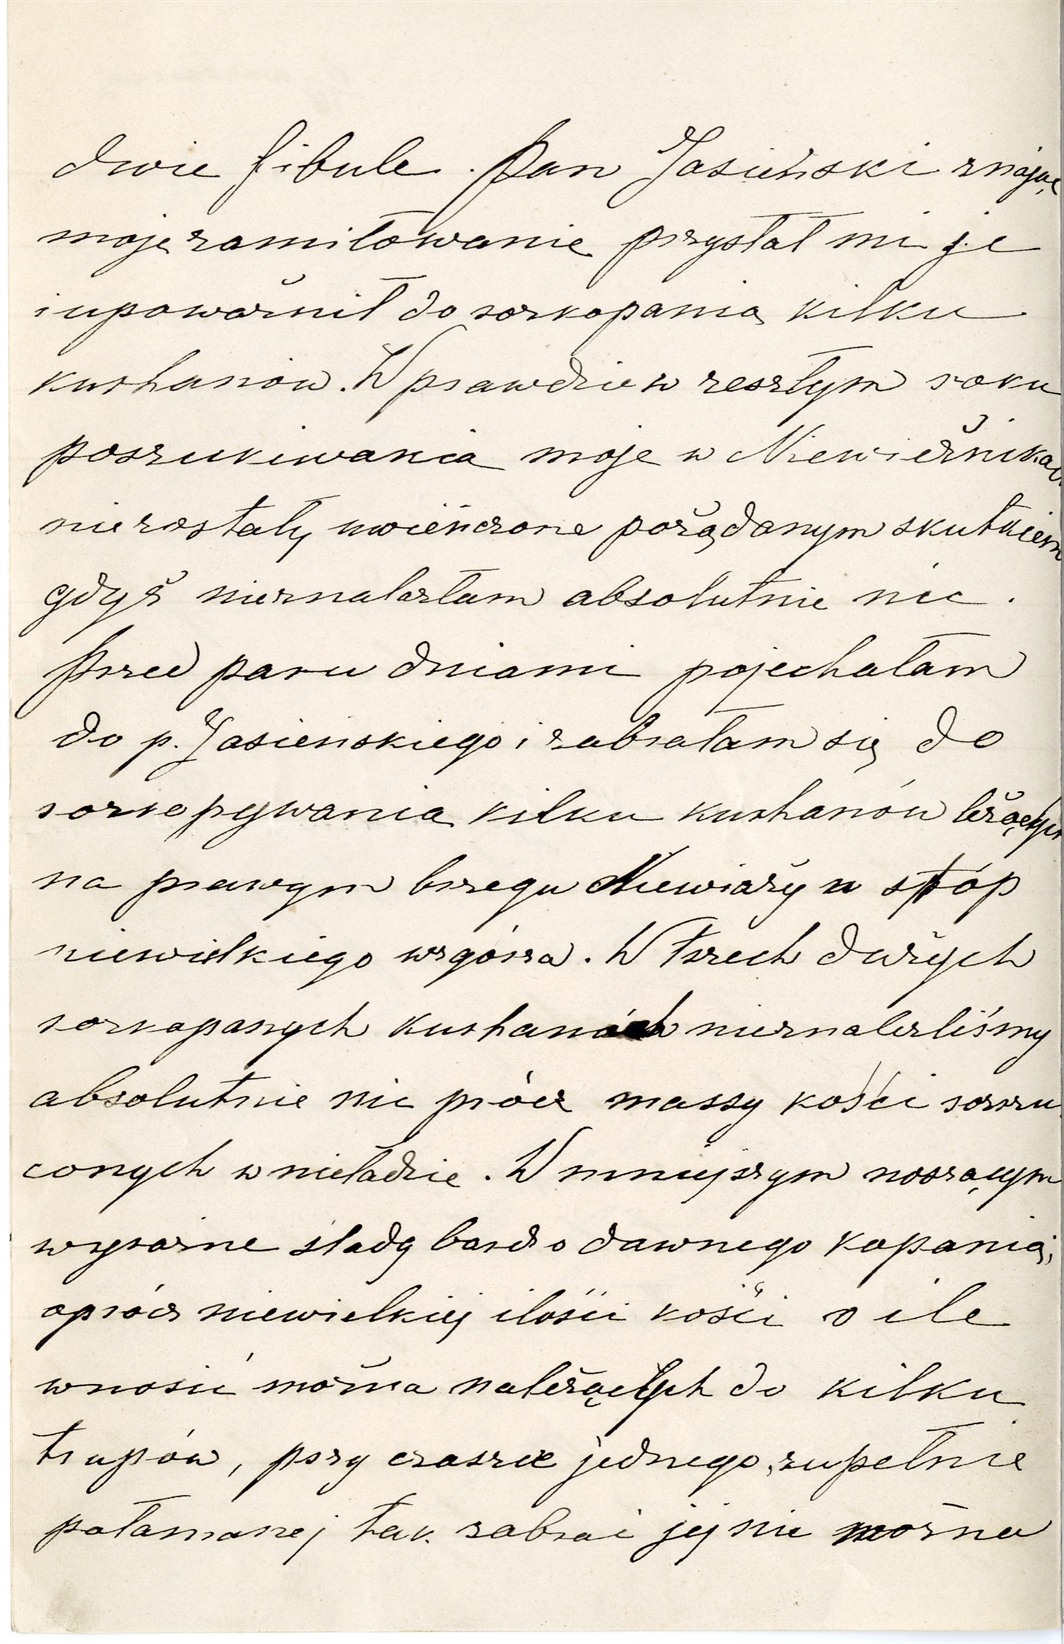 dwie fibule. Pan Jasieński znając
moje zamiłowanie przysłał mi je
i upoważnił do rozkopania kilku
kurhanów. W prawdzie w zeszłym roku
poszukiwania moje w Niewieżnikach
nie zostały uwieńczone pożądanym skutkiem
gdyż nieznalazłam absolutnie nic.
Przed paru dniami pojechałam
do p. Jasieńskiego i zabrałam się do
rozkopywania kilku kurhanów leżących
na prawym brzegu Niewiaży u stóp
niewielkiego wzgórza. W trzech dużych
rozkopanych kurhanach nieznaleźliśmy
absolutnie nic prócz massy kości rozrzu
conych w nieładzie. W mniejszym noszącym
wyraźne ślady bardzo dawnego kopania,
oprócz niewielkiej ilości kości o ile
wnosić można należących do kilku
trupów, przy czaszce jednego, zupełnie
połamanej tak zabrać jej nie można